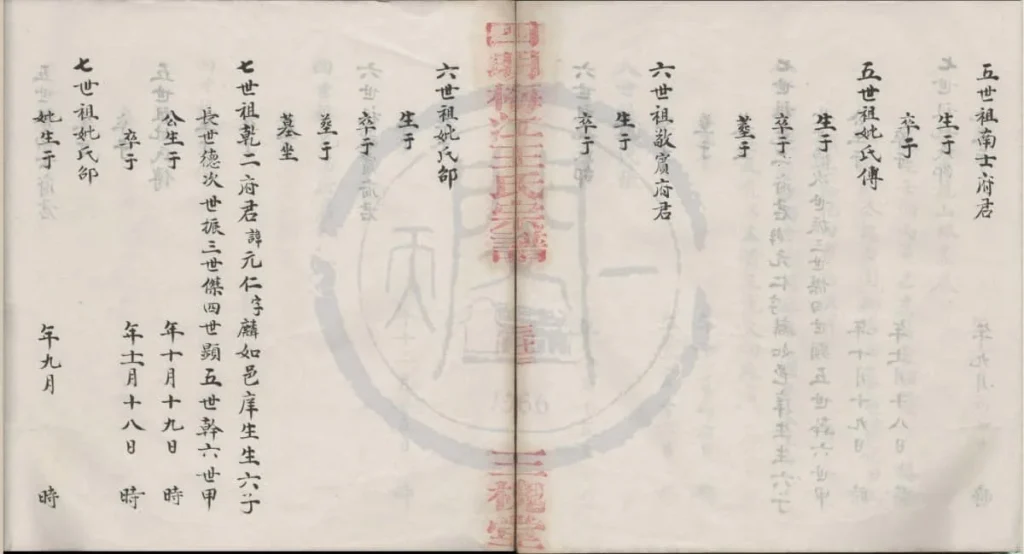 五世祖南士府君
生于
卒于
五世祖妣氏傳
生于
卒于
墓于
六世祖敬賓府君
生于
卒于
六世祖妣氏邵
生于
卒于
墓于
墓坐
七世祖乾二府君諱元仁字麟如邑庠生生六子
長世德次世振三世傑四世顯五世幹六世甲
公生于 年十月十九日 時
卒于 年十二月十八日 時
七世祖妣氏邵
妣生于 年九月 時
王氏宗譜
三槐堂
1956